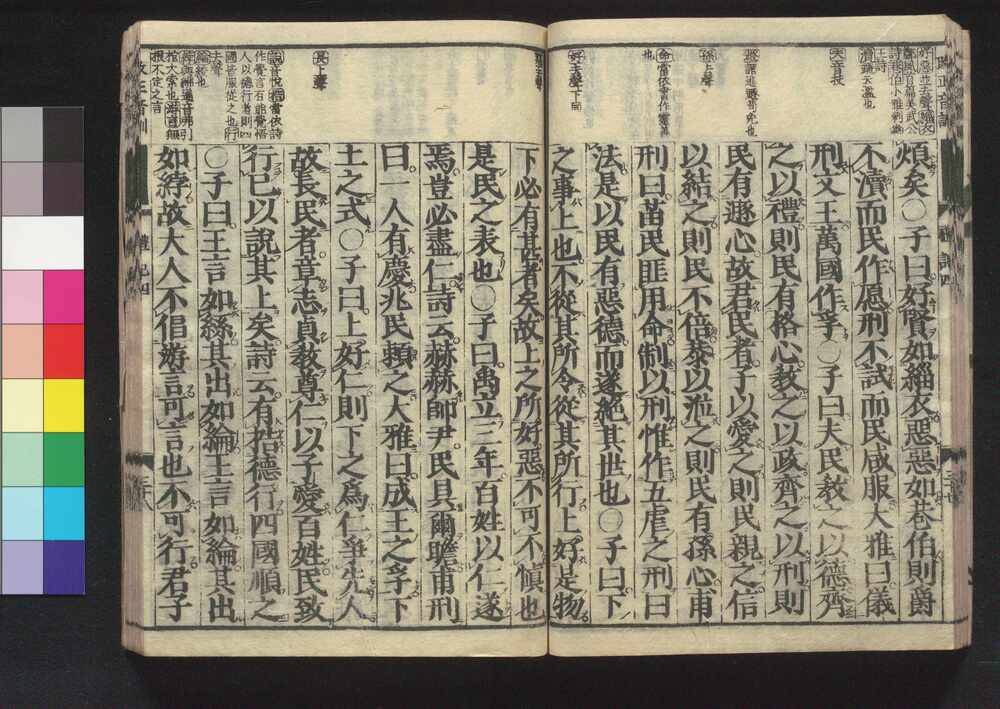 煩矣○子曰好賢如緇衣惡惡如巷伯則爵
不瀆而民作愿刑不試而民咸服大雅曰儀
刑文王萬國作孚○子曰夫民教之以德齊
之以禮則民有格心教之以政齊之以刑則
民有遯心故君民者子以愛之則民親之信
以結之則民不倍恭以涖之則民有孫心甫
刑曰苗民匪用命制以刑惟作五虐之刑曰
法是以民有惡德而遂絕其世也○子曰下
之事上也不從其所令從其所行上好是物
下必有甚者矣故上之所好惡不可不慎也
是民之表也○子曰禹立三年百姓以仁遂
焉豈必盡仁詩云赫赫師尹民具爾瞻甫刑
曰一人有慶兆民賴之大雅曰成王之孚下
土之式○子曰上好仁則下之爲仁爭先人
故長民者章志貞教尊仁以子愛百姓民致
行己以說其上矣詩云有梏德行四國順之
○子曰王言如絲其出如綸王言如綸其出
如綍故大人不倡游言可言也不可行君子
夫音扶
孫去聲
好去聲下同
長上聲